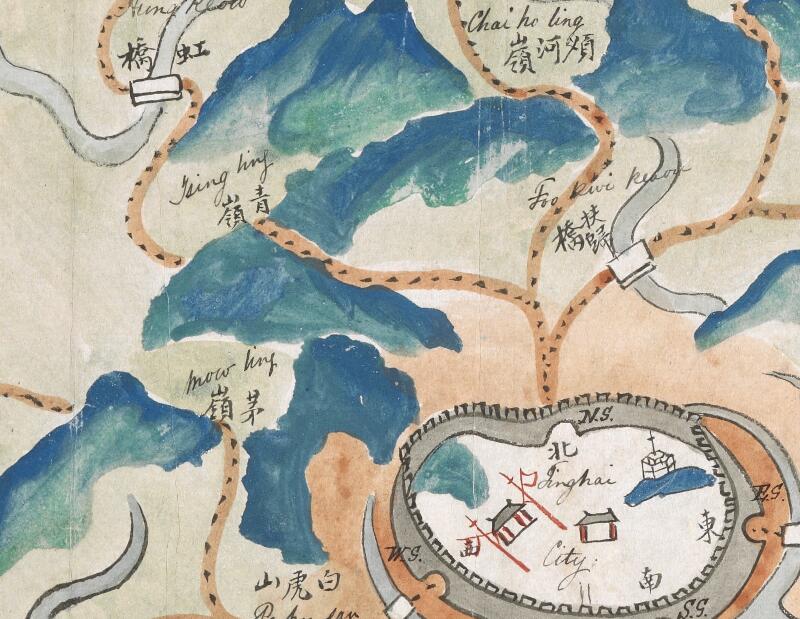 Hung Keaou
虹橋
Chai ho ling
頬河嶺
Tsing ling
青嶺
Foo kwi keaou
扶歸橋
Mow ling
茅嶺
N.G.
北
Tinghai
E.G.
東
西
W.G.
City
南
S.G.
白虎山